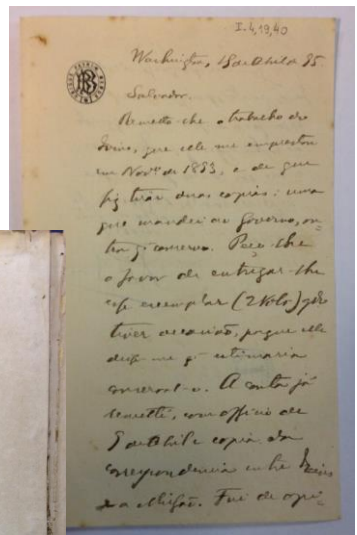 I-4,19,40
Washington, 18 de Abril de 95.
Salvador.
Remetto-lhe o trabalho do
que elle me emprestou
em Novº de 1893, e de que
fiz tirar duas copias: uma
que mandei ao Governo, ou-
tra q. conservo. Peço-lhe
o favor de entregar-lhe
esse exemplar (2 Vols) qdo
tiver occasião, porque elle
disse-me q. estimaria
conserval-o. A conta já
remetti, com officio de
5 de Abril e copia da
correspondencia entre
e a Missão. Fui de opi-